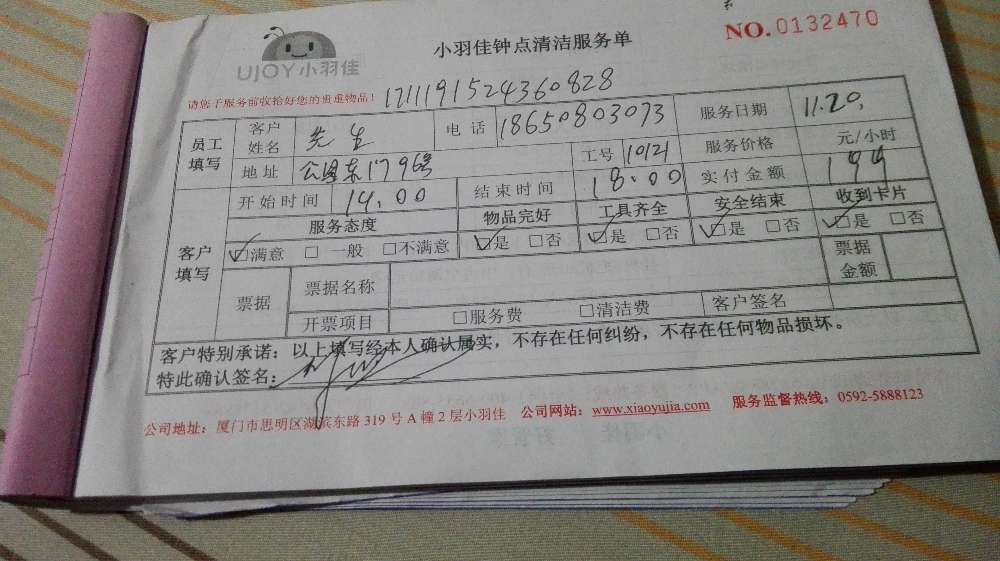 NO.0132470
UJOY小羽佳
小羽佳钟点清洁服务单
请您于服务前收拾好您的贵重物品！ 1711191524360828
员工填写 客户姓名 先生 电话 18650803073 服务日期 11.20.
地址 179 工号 10121 服务价格 元/小时
开始时间 14.00 结束时间 18.00 实付金额 199
客户填写 服务态度 物品完好 工具齐全 安全结束 收到卡片
☑满意 □一般 □不满意 ☑是 □否 ☑是 □否 ☑是 □否 ☑是 □否
票据 票据名称 票据金额
开票项目 □服务费 □清洁费 客户签名
客户特别承诺：以上填写经本人确认属实，不存在任何纠纷，不存在任何物品损坏。
特此确认签名：
公司地址：厦门市思明区湖滨东路319号A幢2层小羽佳 公司网站：www.xiaoyujia.com 服务监督热线：0592-5888123